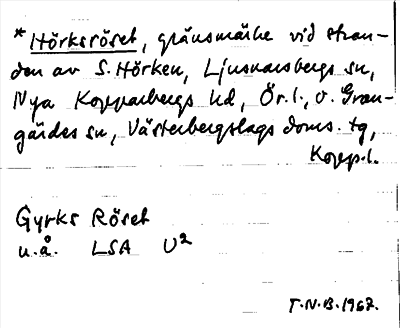 * Hörksröset, gränsmärke vid stran-
den av S. Hörken, Ljusnarsbergs sn,
Nya Kopparbergs hd, Ör.l., o. Gran-
gärdes sn, Västerbergslags doms. tg,
Kopp.l.
Gyrks Röset
u.å. LSA U²
T.N.B. 1967.